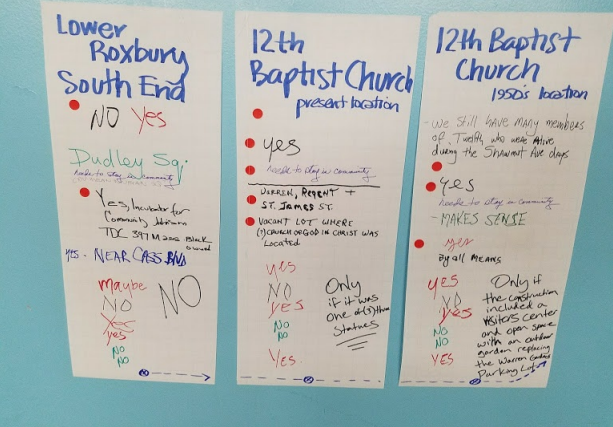 Lower
Roxbury
South End
NO Yes
Dudley Sq.
needs to stay in community
Yes, Incubator for
Community
TDC 397 Mass Black
owned
yes. NEAR CASS BLVD
maybe
NO
NO
Yes
yes
NO
NO
12th
Baptist Church
present location
yes
needs to stay in community
WARREN, REGENT +
ST. JAMES ST.
VACANT LOT WHERE
(?) CHURCH OF GOD IN CHRIST WAS
Located
yes
NO
YES
NO
NO
YES.
Only
if it was
one of (3) three
statues
12th Baptist
Church
1950's location
- We still have many members
of Twelfth who were Alive
during the Shawmut Ave days
yes
needs to stay in community
- MAKES SENSE
yes
by all MEANS
YES
NO
Yes
NO
NO
YES
Only if
the construction
included a
visitors center
and open space
with an outdoor
garden replacing
the Warren Gardens
Parking Lot